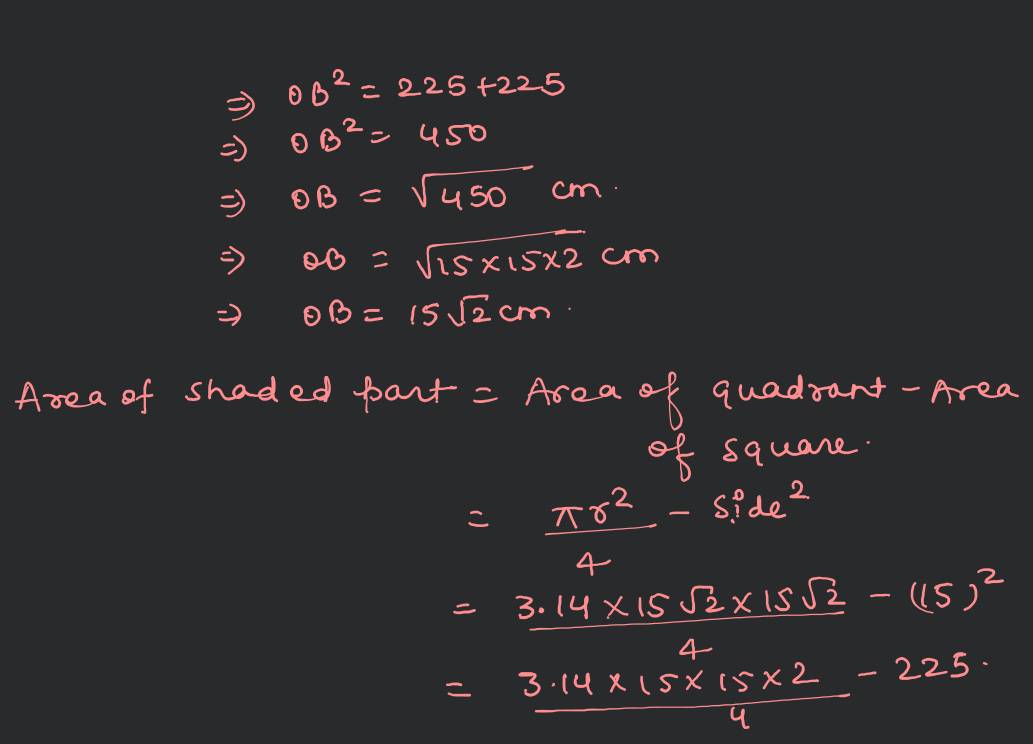 ⇒ OB² = 225 + 225
⇒ OB² = 450
⇒ OB = √450 cm.
⇒ OB = √15×15×2 cm
⇒ OB = 15√2 cm.
Area of shaded part = Area of quadrant - Area
of square.
= πr²/4 - side²
= 3.14 × 15√2 × 15√2/4 - (15)²
= 3.14 × 15 × 15 × 2/4 - 225.